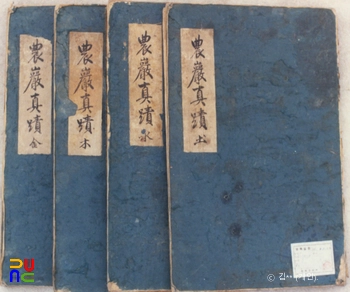 農巖真蹟 金
農巖真蹟 木
農巖真蹟 水
農巖真蹟 土